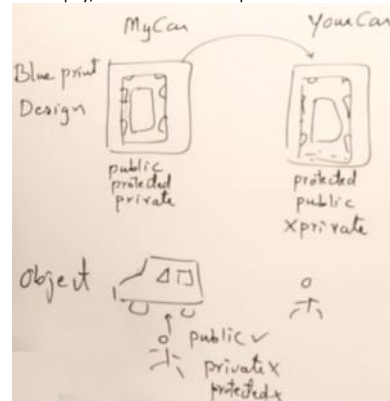 MyCar YourCar
Blue print
Design
public
protected
private
protected
public
x private
Object
public ✓
private x
protected x